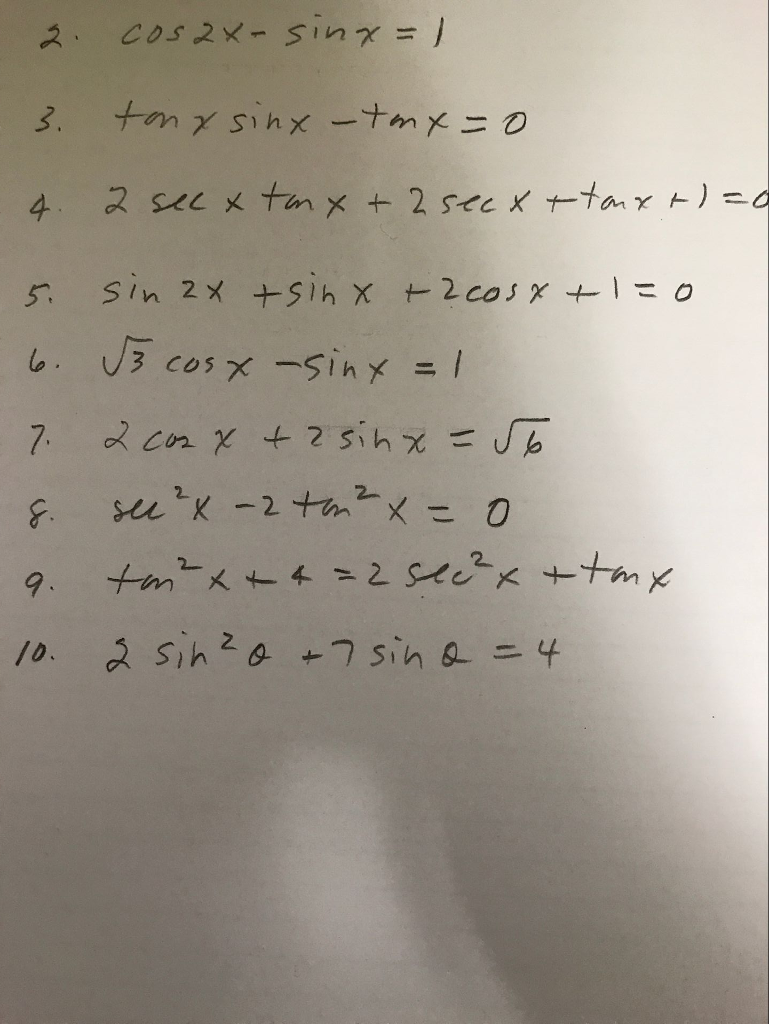 2. cos 2x - sin x = 1
3. tan x sin x - tan x = 0
4. 2 sec x tan x + 2 sec x + tan x + 1 = 0
5. sin 2x + sin x + 2 cos x + 1 = 0
6. √3 cos x - sin x = 1
7. 2 cos x + 2 sin x = √6
8. sec²x - 2 tan²x = 0
9. tan²x + 4 = 2 sec²x + tan x
10. 2 sin²θ + 7 sin θ = 4